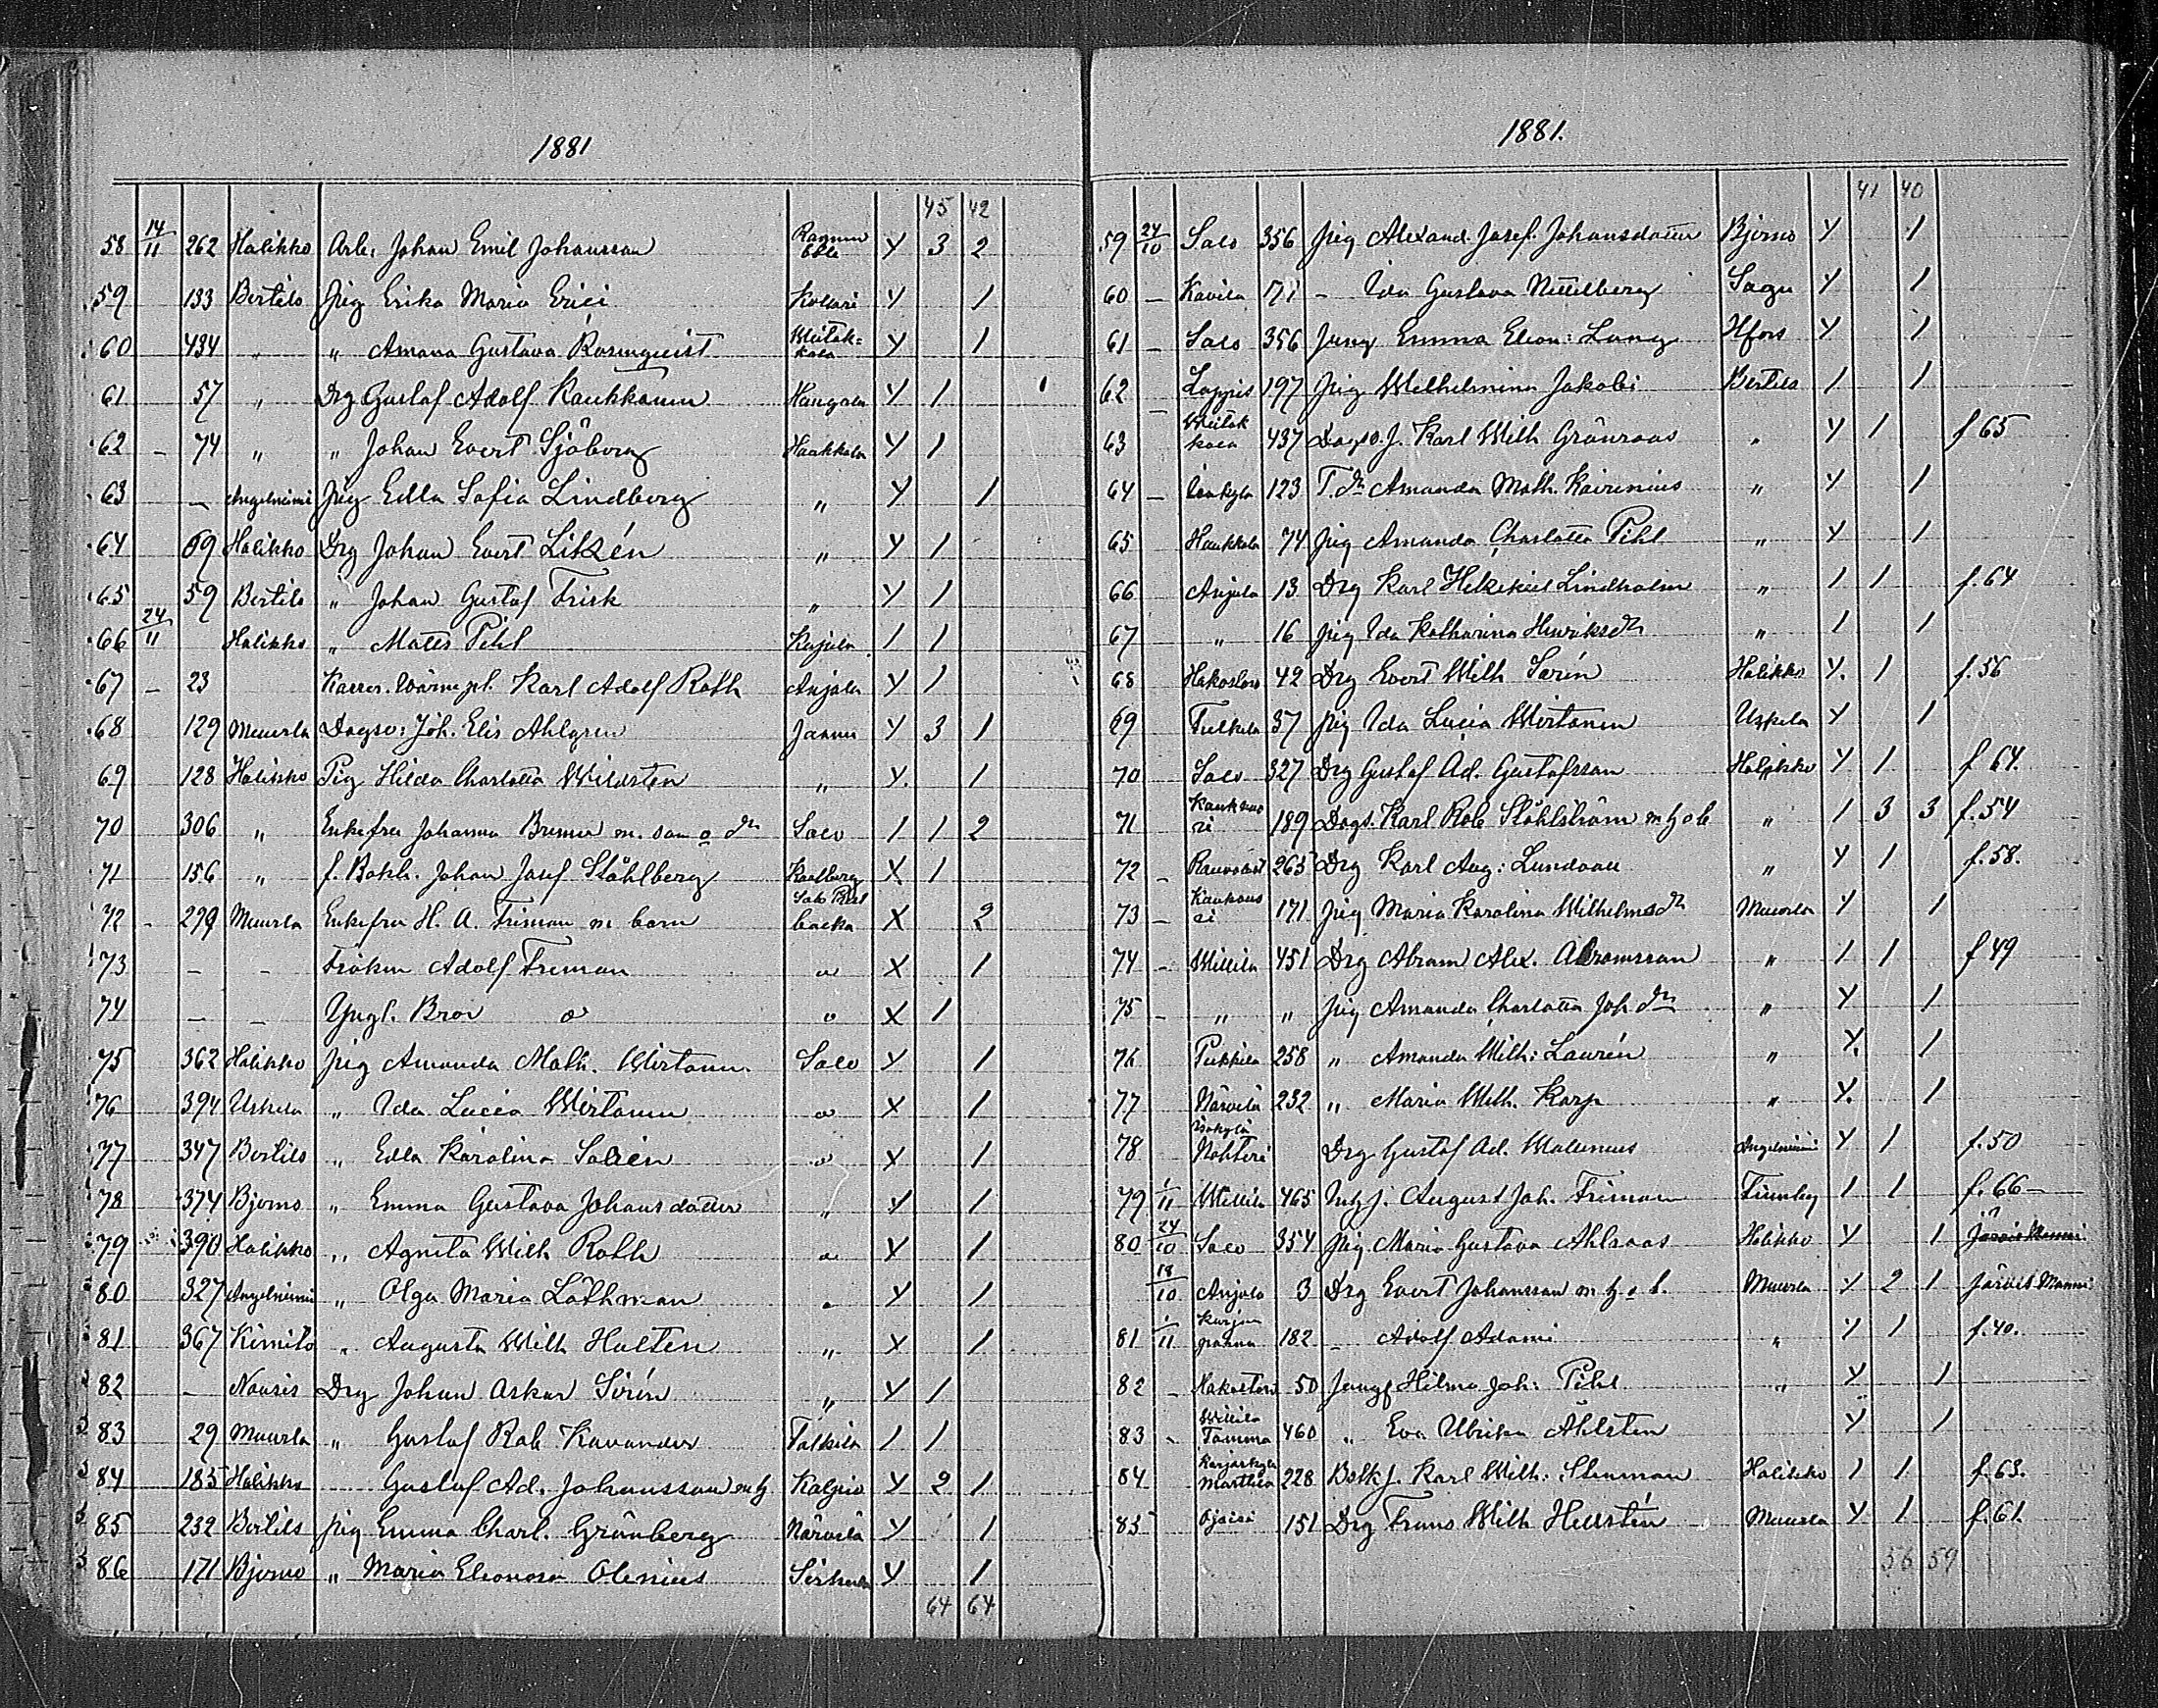 1881
45 42
58 14/11 262 Halikko Arb: Johan Emil Johansson Y 3 2
59 133 Bertils Pig Erika Maria Erici Kollari Y 1
60 434 „ „ Amana Gustava Rosenqvist Y 1
61 57 „ Drg Gustaf Adolf Kaukkanen Hangola Y 1
62 – 74 „ „ Johan Evert Sjöberg Haukkala Y 1
63 – Angelniemi Pig Edla Sofia Lindberg „ Y 1
64 69 Halikko Drg Johan Evert Litzén „ Y 1
65 59 Bertils „ Johan Gustaf Frisk „ Y 1
66 24/11 Halikko „ Matts Pihl 1 1
67 – 23 Karl Adolf Roth Anjala Y 1
68 129 Muurla Dagsv: Joh. Elis Ahlgren Y 3 1
69 128 Halikko Pig Hilda Charlotta Willsten „ Y. 1
70 306 „ Enkefru Johanna Bremer m. son o dr Salo 1 1 2
71 156 „ f. Bokh. Johan Josef Ståhlberg Karlberg X 1
72 – 279 Muurla Enkefru H. A. Friman m barn backa X 2
73 – – Fröken Adolf Freman o X 1
74 – – Yngl. Bror o o X 1
75 362 Halikko Pig Amanda Math. Wirtanen Salo Y 1
76 394 Uskela „ Ida Lucia Wirtanen o X 1
77 347 Bertils „ Edla Karolina Salien o X 1
78 374 Bjerno „ Emma Gustava Johansdotter „ Y 1
79 390 Halikko „ Agneta Wilh Roth o X 1
80 327 Angelniemi „ Olga Maria Löthman „ Y 1
81 367 Kimito „ Augusta Wilh Hulten „ X 1
82 – Nousis Drg Johan Oskar Sirén „ Y 1
83 29 Muurla „ Gustaf Rob Kavander 1 1
84 185 Halikko Gustaf Ad. Johansson m h Y 2 1
85 232 Bertils Pig Emma Charl. Grönberg Närvilä Y 1
86 171 Bjerno „ Maria Eleonora Olenius Y 1
64 64
1881.
41 40
59 24/10 Salo 356 Pig Alexand. Josef. Johansdotter Bjerno Y 1
60 – Kavila 171 – Ida Gustava Sagu Y 1
61 – Salo 356 Jung Emma Eleon: Lang Hfors Y 1
62 – Lappis 197 Pig Wilhelmina Jakobi Bertils 1 1
63 437 Dagsv. J. Karl Wilh Grönroos „ Y 1 f 65
64 – 123 T. dr Amanda Math. Kairenius „ Y 1
65 Haukkala 74 Pig Amanda Charlotta Pihl „ Y 1
66 Anjala 13 Drg Karl Hekekiel Lindholm „ 1 1 f. 64
67 „ 16 Pig Ida Katharina Henriksdr „ 1 1
68 42 Drg Evert Wilh Sirén Halikko Y. 1 f. 56
69 37 Pig Ida Lucia Wirtanen Uskela Y 1
70 Salo 327 Drg Gustaf Ad. Gustafsson Halikko Y 1 f 64.
71 189 Dags. Karl Rob Ståhlström m h o b „ 1 3 3 f. 54
72 – 265 Drg Karl Aug: Lundvan „ Y 1 f. 58.
73 – 171 Pig Maria Karolina Wilhelmsdr Muurla Y 1
74 – Willila 451 Drg Abram Alex. Abramsson „ 1 1 f 49
75 – „ „ Pig Amanda Charlotta Joh dr „ Y 1
76 Pukkila 258 „ Amanda Wilh: Laurén „ Y. 1
77 Närvilä 232 „ Maria Wilh. Karp „ Y. 1
78 Drg Gustaf Ad. Malenius Angelniemi Y 1 f. 50
79 1/11 Willila 465 August Joh. Friman Finnby 1 1 f. 66 –
80 24/10 Salo 354 Pig Maria Gustava Ahlroos Halikko Y 1
18/10 Anjala 3 Drg Evert Johansson m h o b. Muurla Y 2 1
81 1/11 182 – Adolf Adami „ Y 1 f. 40.
82 – 50 Jungf Hilma Joh: Pihl „ Y 1
83 – Willila 460 „ Eva Ulrika Åhlsten Y 1
84 228 Karl Wilh: Stenman Halikko 1 1 f. 63.
85 151 Drg Frans Wilh Hellstén Muurla Y 1 f. 61.
56 59